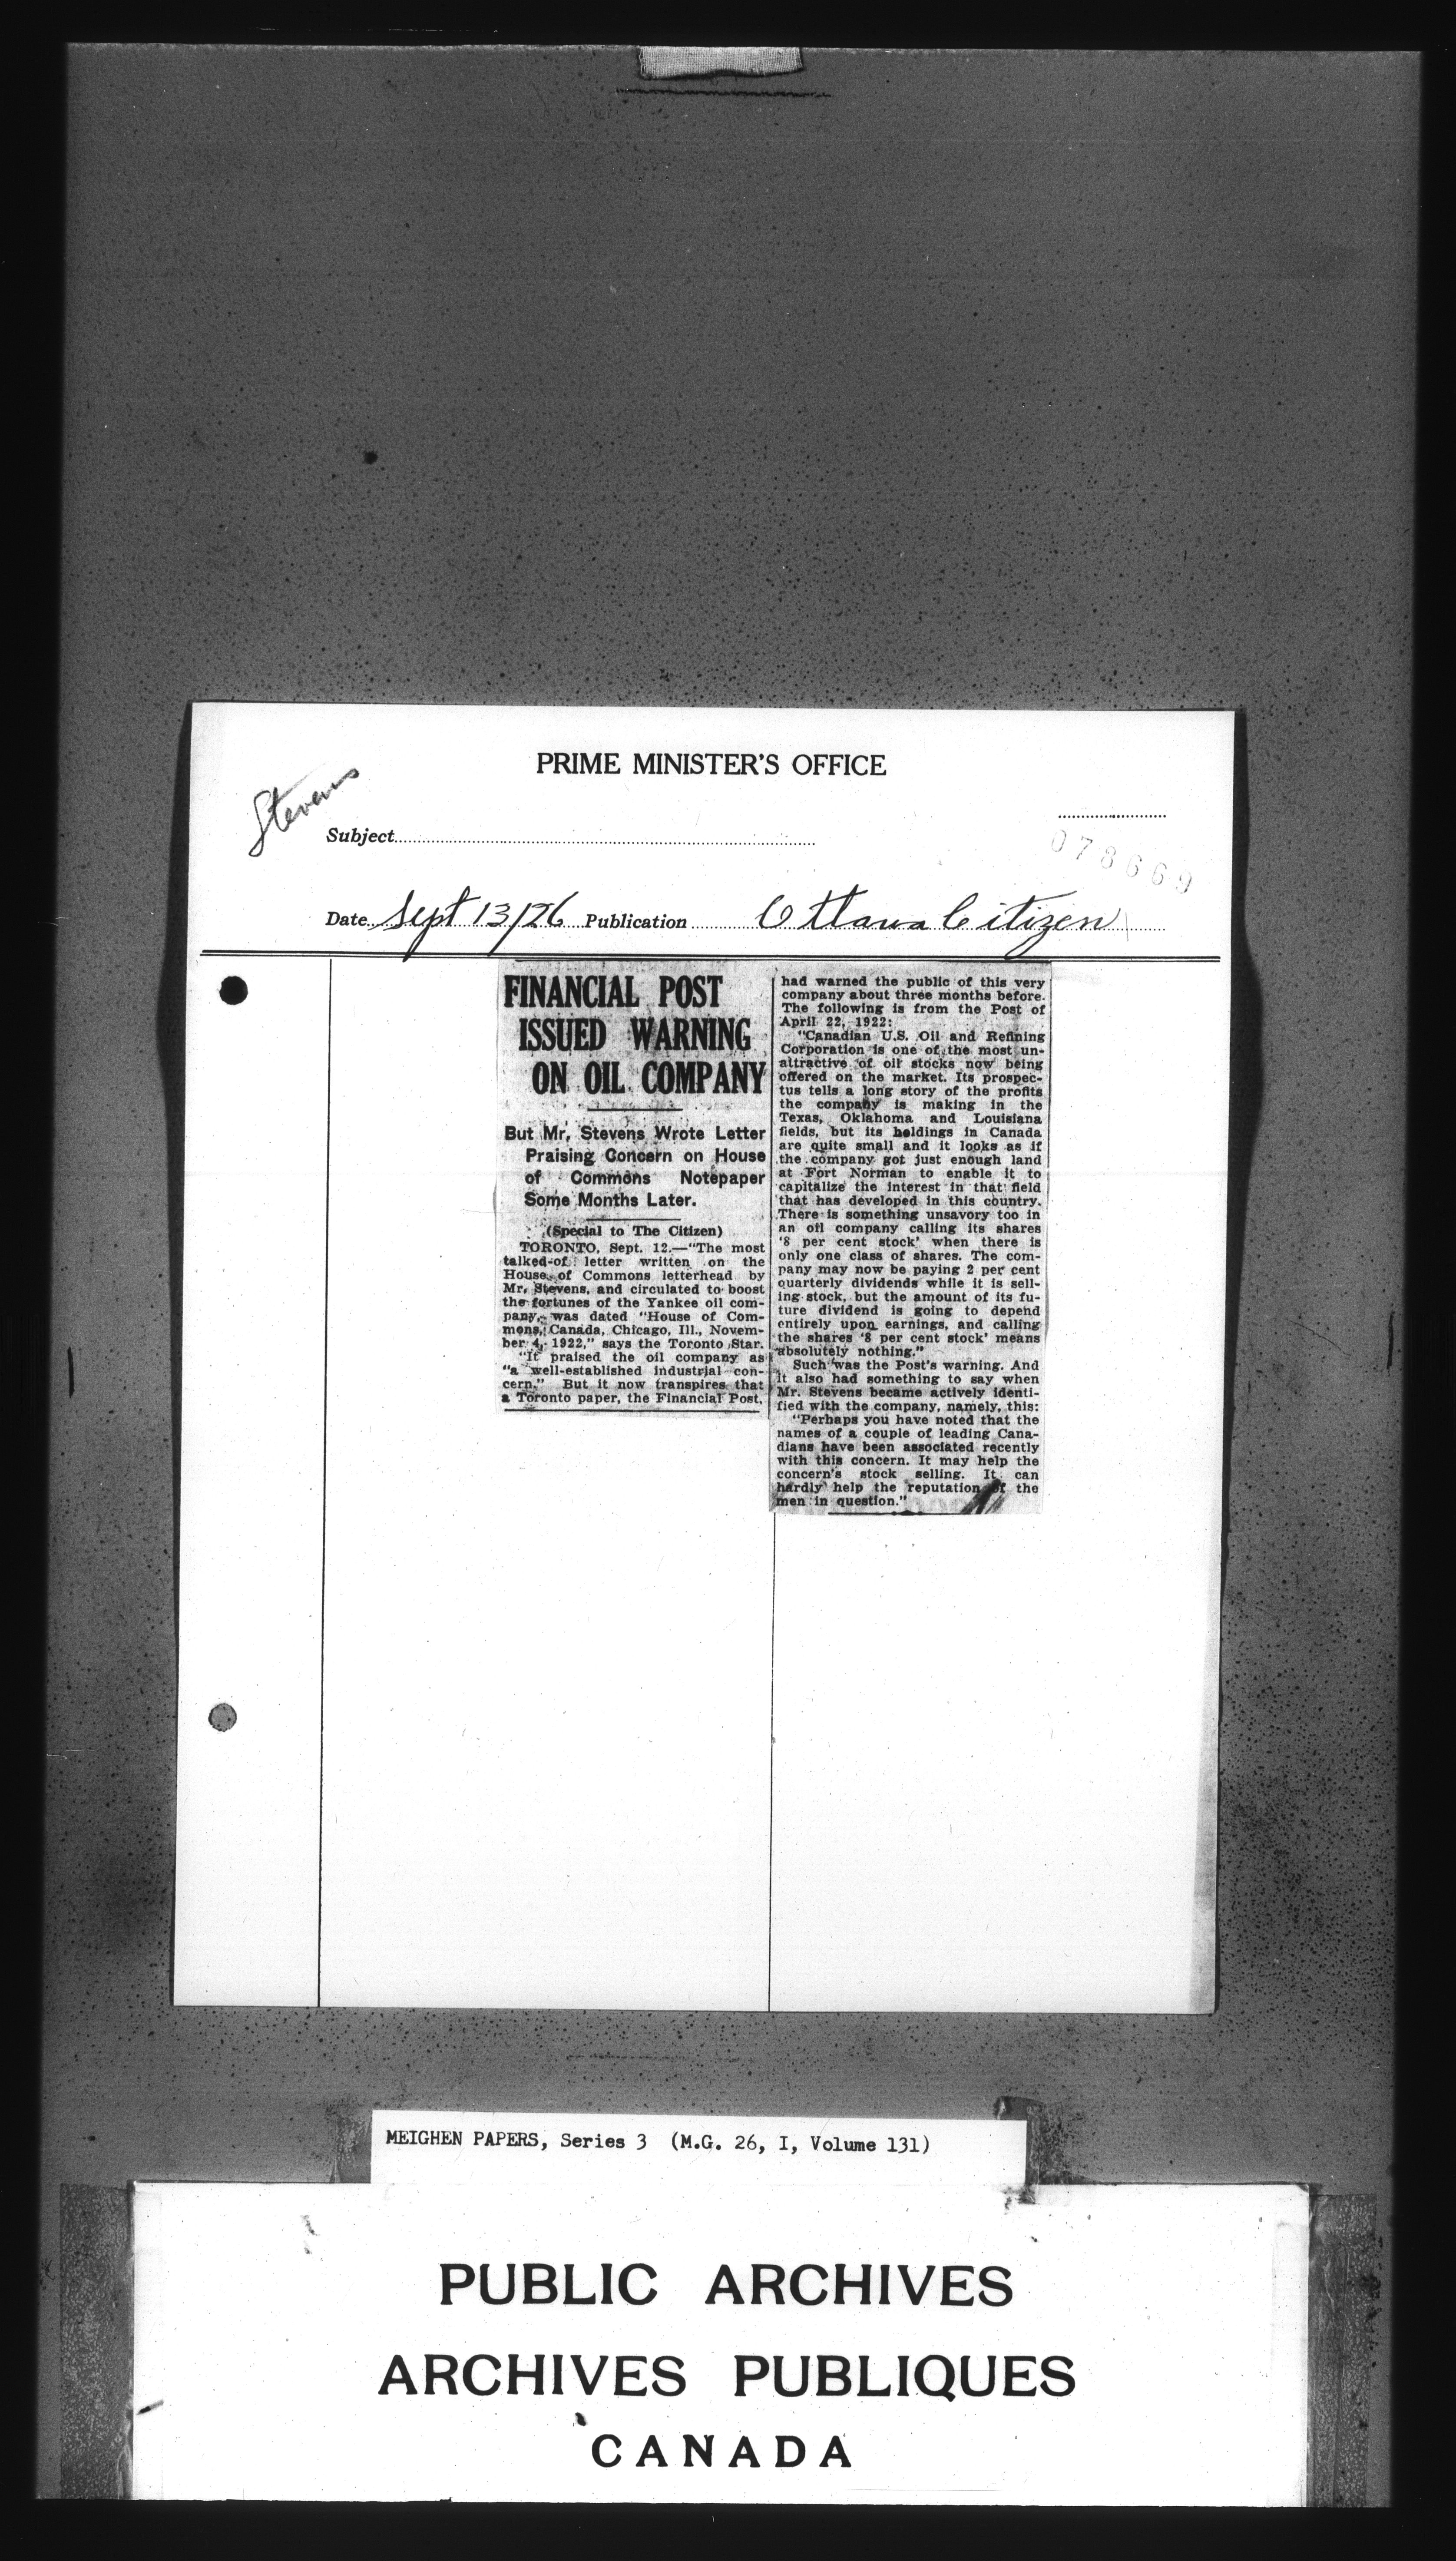 PRIME MINISTER'S OFFICE
Stevens
Subject
078669
Date Sept 13/26 Publication Ottawa Citizen
FINANCIAL POST
ISSUED WARNING
ON OIL COMPANY
But Mr. Stevens Wrote Letter
Praising Concern on House
of Commons Notepaper
Some Months Later.
(Special to The Citizen)
TORONTO, Sept. 12.—"The most
talked-of letter written on the
House of Commons letterhead by
Mr. Stevens, and circulated to boost
the fortunes of the Yankee oil com-
pany, was dated "House of Com-
mons, Canada, Chicago, Ill., Novem-
ber 4, 1922," says the Toronto Star.
"It praised the oil company as
"a well-established industrial con-
cern." But it now transpires that
a Toronto paper, the Financial Post,
had warned the public of this very
company about three months before.
The following is from the Post of
April 22, 1922:
"Canadian U.S. Oil and Refining
Corporation is one of the most un-
attractive of oil stocks now being
offered on the market. Its prospec-
tus tells a long story of the profits
the company is making in the
Texas, Oklahoma and Louisiana
fields, but its holdings in Canada
are quite small and it looks as if
the company got just enough land
at Fort Norman to enable it to
capitalize the interest in that field
that has developed in this country.
There is something unsavory too in
an oil company calling its shares
'8 per cent stock' when there is
only one class of shares. The com-
pany may now be paying 2 per cent
quarterly dividends while it is sell-
ing stock, but the amount of its fu-
ture dividend is going to depend
entirely upon earnings, and calling
the shares '8 per cent stock' means
absolutely nothing."
Such was the Post's warning. And
it also had something to say when
Mr. Stevens became actively identi-
fied with the company, namely, this:
"Perhaps you have noted that the
names of a couple of leading Cana-
dians have been associated recently
with this concern. It may help the
concern's stock selling. It can
hardly help the reputation of the
men in question."
MEIGHEN PAPERS, Series 3 (M.G. 26, I, Volume 131)
PUBLIC ARCHIVES
ARCHIVES PUBLIQUES
CANADA